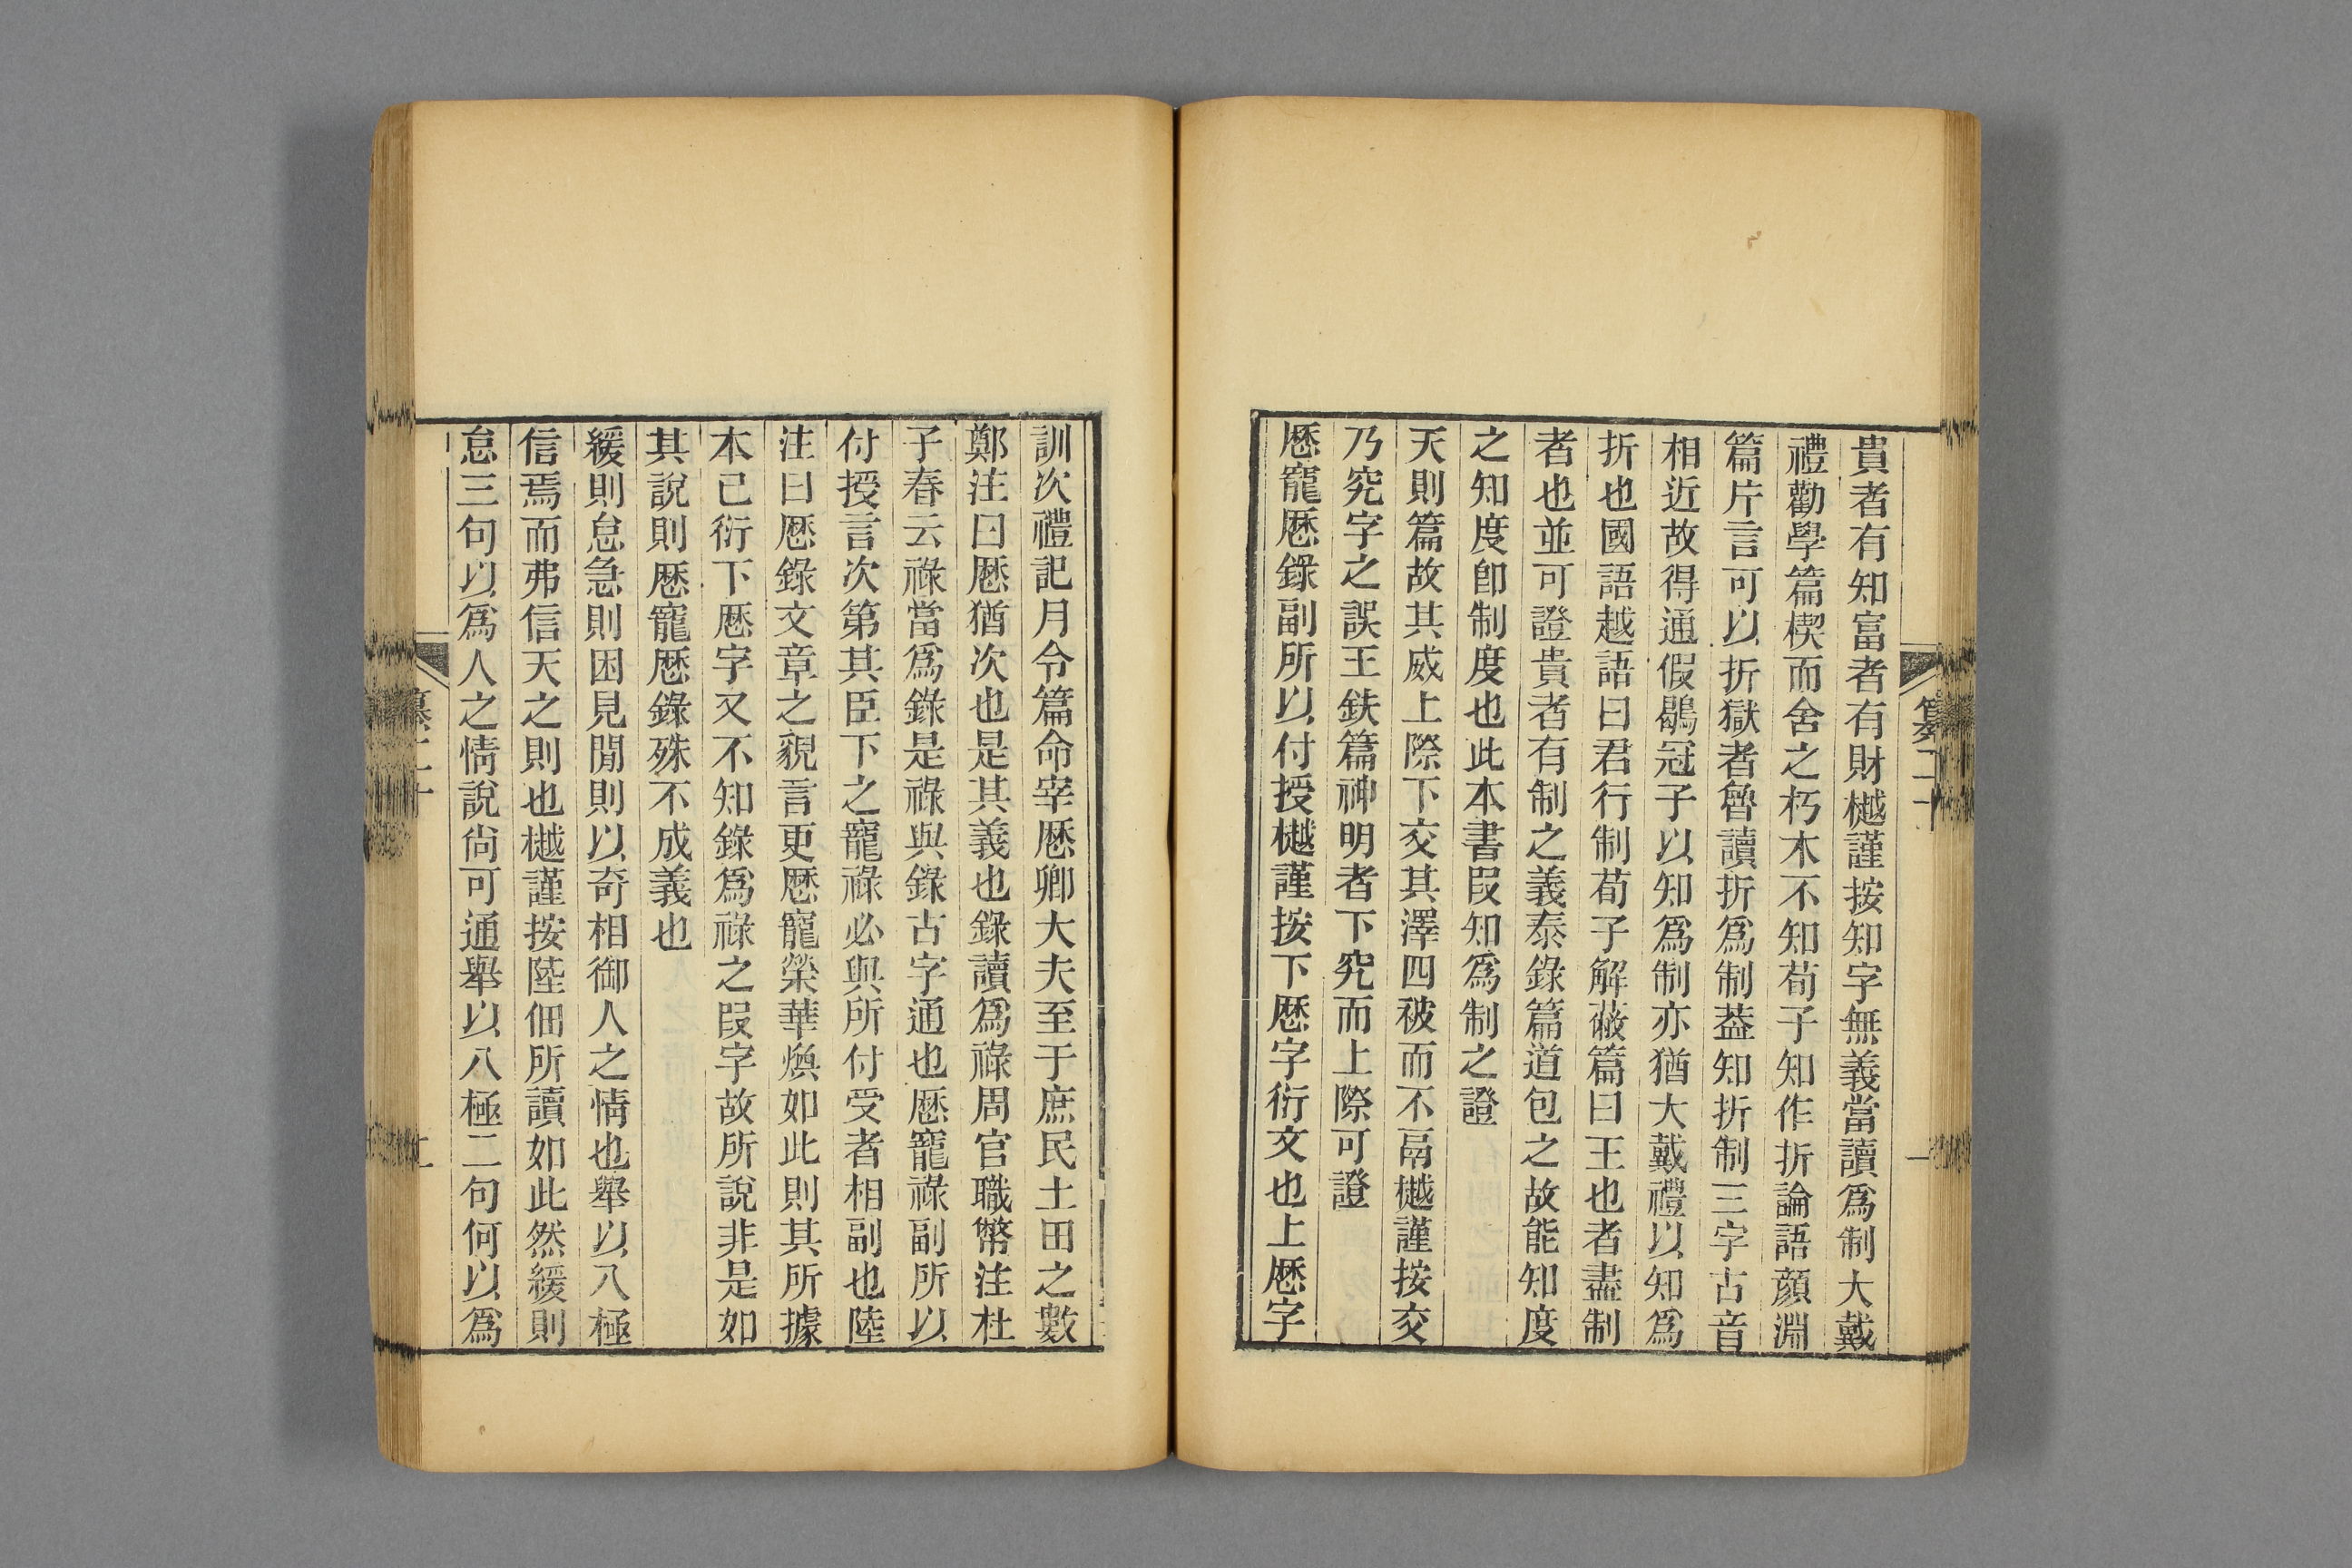 貴者有知富者有財樾謹按知字無義當讀爲制大戴
禮勸學篇楔而舍之朽木不知荀子知作折論語顏淵
篇片言可以折獄者魯讀折爲制葢知折制三字古音
相近故得通假鶡冠子以知爲制亦猶大戴禮以知爲
折也國語越語曰君行制荀子解蔽篇曰王也者盡制
者也並可證貴者有制之義泰錄篇道包之故能知度
之知度卽制度也此本書叚知爲制之證
天則篇故其威上際下交其澤四被而不鬲樾謹按交
乃究字之誤王鈇篇神明者下究而上際可證
厯寵厯錄副所以付授樾謹按下厯字衍文也上厯字
訓次禮記月令篇命宰厯卿大夫至于庶民土田之數
鄭注曰厯猶次也是其義也錄讀爲祿周官職幣注杜
子春云祿當爲錄是祿與錄古字通也厯寵祿副所以
付授言次第其臣下之寵祿必與所付受者相副也陸
注曰厯錄文章之貌言更厯寵榮華煥如此則其所據
本已衍下厯字又不知錄爲祿之叚字故所說非是如
其說則厯寵厯錄殊不成義也
緩則怠急則困見閒則以奇相御人之情也舉以八極
信焉而弗信天之則也樾謹按陸佃所讀如此然緩則
怠三句以爲人之情說尙可通舉以八極二句何以爲